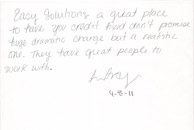 Easy Solutions a great place
to have you credit fixed don't promise
huge dramatic change but a realistic
one. They have great people to
work with.
4-8-11